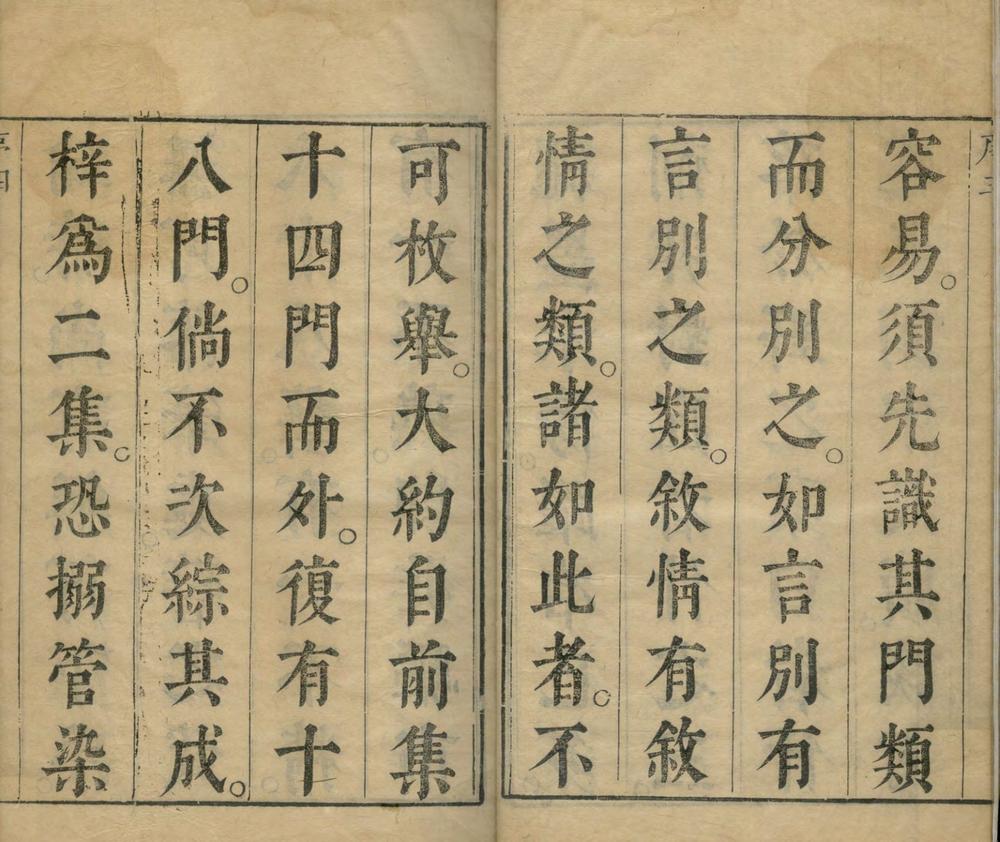 容易。須先識其門類
而分別之。如言別有
言別之類。敘情有敘
情之類。諸如此者。不
可枚舉。大約自前集
十四門而外。復有十
八門。倘不次綜其成。
梓爲二集。恐搦管染